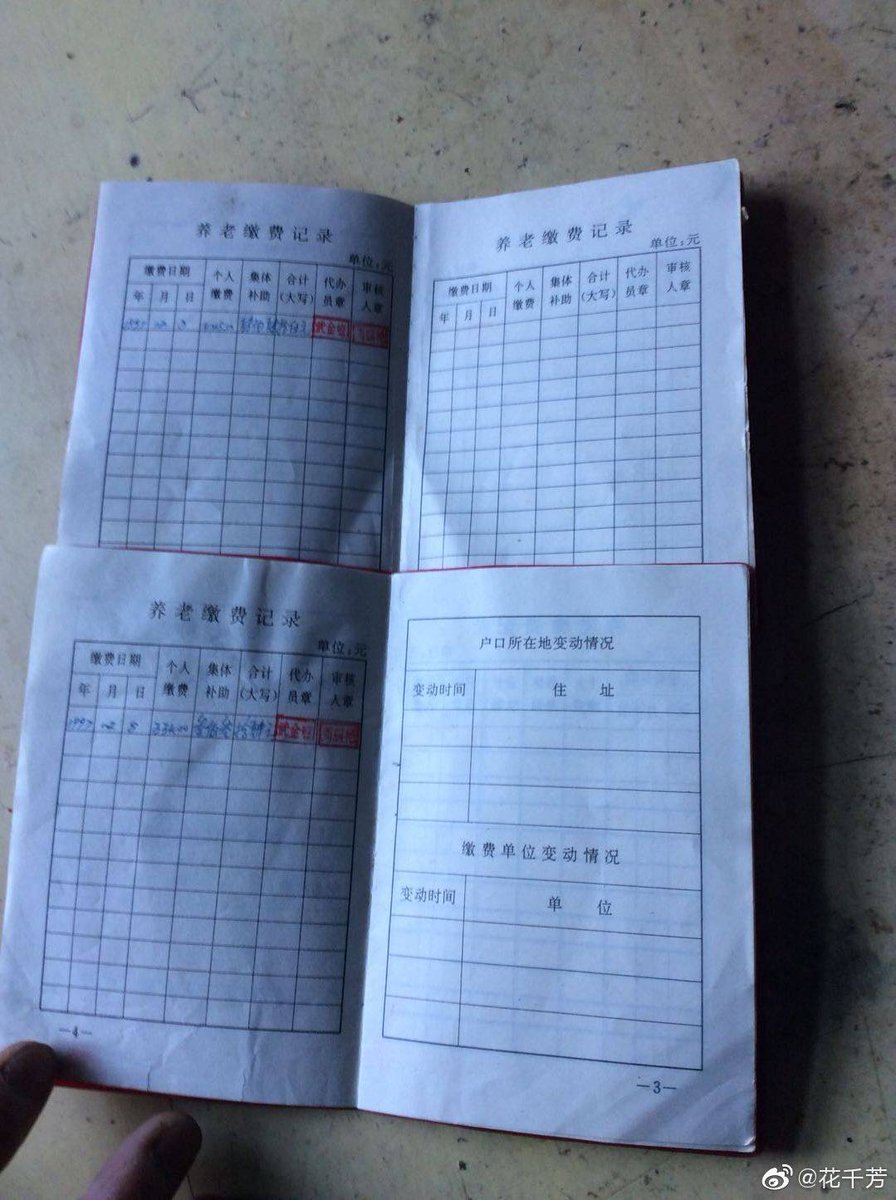 养老缴费记录
单位：元
缴费日期 个人缴费 集体补助 合计（大写） 代办员章 审核人章
年 月 日
养老缴费记录
单位：元
缴费日期 个人缴费 集体补助 合计（大写） 代办员章 审核人章
年 月 日
养老缴费记录
单位：元
缴费日期 个人缴费 集体补助 合计（大写） 代办员章 审核人章
年 月 日
1997 8
—4—
户口所在地变动情况
变动时间 住址
缴费单位变动情况
变动时间 单位
—3—
@花千芳